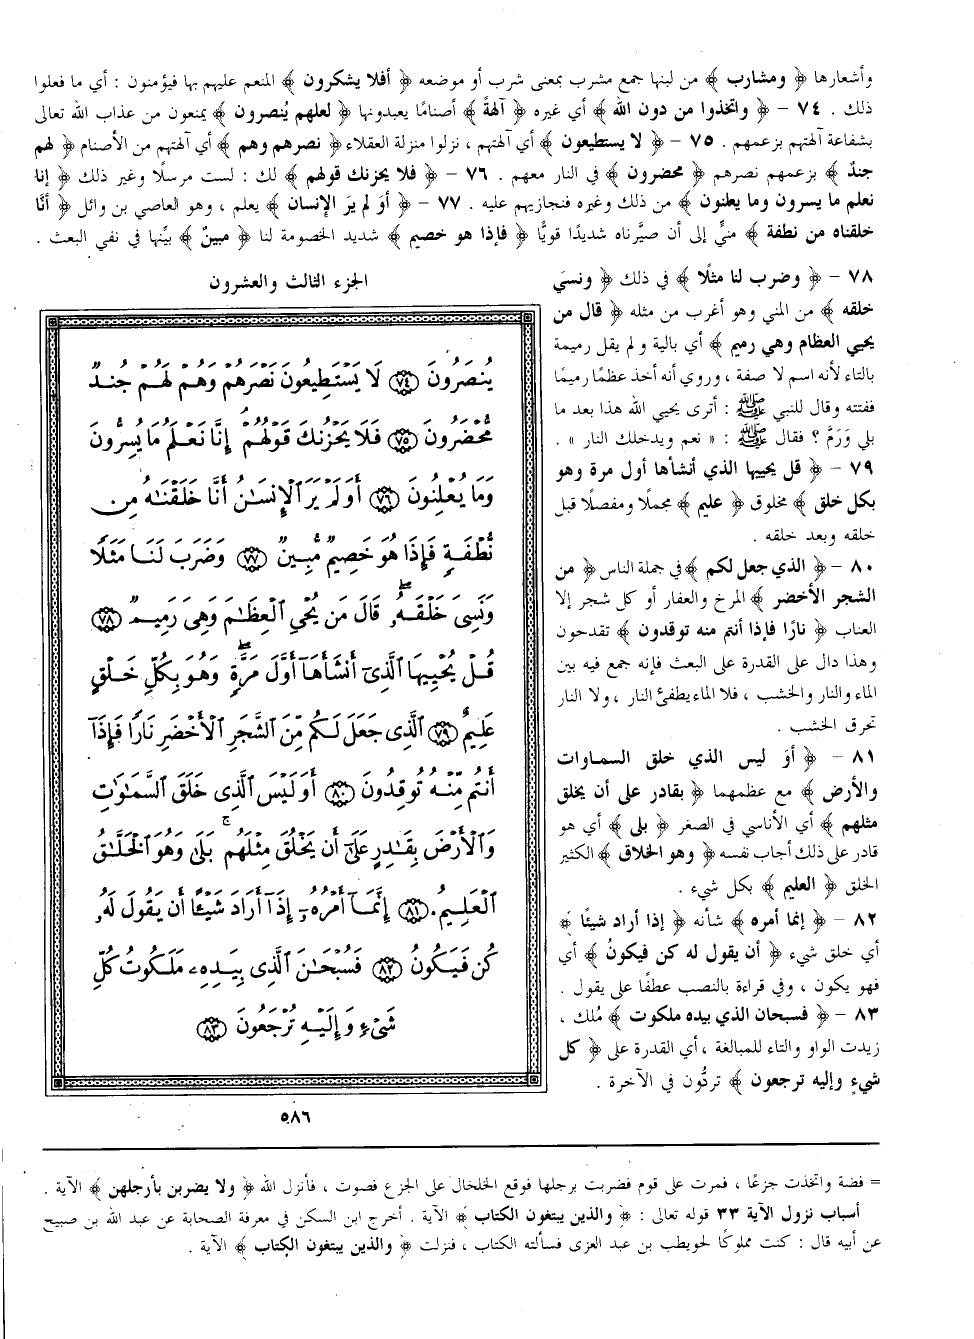 وأشعارها ﴿ ومشارب ﴾ من لبنها جمع مشرب بمعنى شرب أو موضعه ﴿ أفلا يشكرون ﴾ المنعم عليهم بها فيؤمنون : أي ما فعلوا
ذلك . ٧٤ – ﴿ واتخذوا من دون الله ﴾ أي غيره ﴿ آلهةً ﴾ أصنامًا يعبدونها ﴿ لعلهم يُنصرون ﴾ يمنعون من عذاب الله تعالى
بشفاعة آلهتهم بزعمهم . ٧٥ – ﴿ لا يستطيعون ﴾ أي آلهتهم ، نزلوا منزلة العقلاء ﴿ نصرهم وهم ﴾ أي آلهتهم من الأصنام ﴿ لهم
جندٌ ﴾ بزعمهم نصرهم ﴿ محضرون ﴾ في النار معهم . ٧٦ – ﴿ فلا يحزنك قولهم ﴾ لك : لست مرسلًا وغير ذلك ﴿ إنا
نعلم ما يسرون وما يعلنون ﴾ من ذلك وغيره فنجازيهم عليه . ٧٧ – ﴿ أوَ لم يرَ الإنسان ﴾ يعلم ، وهو العاصي بن وائل ﴿ أنَّا
خلقناه من نطفة ﴾ منيٍّ إلى أن صيَّرناه شديدًا قويًّا ﴿ فإذا هو خصيم ﴾ شديد الخصومة لنا ﴿ مبينٌ ﴾ بيِّنها في نفي البعث .
٧٨ – ﴿ وضرب لنا مثلًا ﴾ في ذلك ﴿ ونسيَ
خلقه ﴾ من المني وهو أغرب من مثله ﴿ قال من
يحيي العظام وهي رميم ﴾ أي بالية ولم يقل رميمة
بالتاء لأنه اسم لا صفة ، وروي أنه أخذ عظمًا رميمًا
ففتته وقال للنبي ﷺ : أترى يحيي الله هذا بعد ما
بلي وَرَمَّ ؟ فقال ﷺ : « نعم ويدخلك النار » .
٧٩ – ﴿ قل يحييها الذي أنشأها أول مرة وهو
بكل خلق ﴾ مخلوق ﴿ عليم ﴾ مجملًا ومفصلًا قبل
خلقه وبعد خلقه .
٨٠ – ﴿ الذي جعل لكم ﴾ في جملة الناس ﴿ من
الشجر الأخضر ﴾ المرخ والعفار أو كل شجر إلا
العناب ﴿ نارًا فإذا أنتم منه توقدون ﴾ تقدحون
وهذا دال على القدرة على البعث فإنه جمع فيه بين
الماء والنار والخشب ، فلا الماء يطفئ النار ، ولا النار
تحرق الخشب .
٨١ – ﴿ أوَ ليس الذي خلق السماوات
والأرض ﴾ مع عظمهما ﴿ بقادر على أن يخلق
مثلهم ﴾ أي الأناسي في الصغر ﴿ بلى ﴾ أي هو
قادر على ذلك أجاب نفسه ﴿ وهو الخلاق ﴾ الكثير
الخلق ﴿ العليم ﴾ بكل شيء .
٨٢ – ﴿ إنما أمره ﴾ شأنه ﴿ إذا أراد شيئًا ﴾
أي خلق شيء ﴿ أن يقول له كن فيكونُ ﴾ أي
فهو يكون ، وفي قراءة بالنصب عطفًا على يقول .
٨٣ – ﴿ فسبحان الذي بيده ملكوت ﴾ مُلك ،
زيدت الواو والتاء للمبالغة ، أي القدرة على ﴿ كل
شيءٍ وإليه ترجعون ﴾ تردُّون في الآخرة .
الجزء الثالث والعشرون
يُنصَرُونَ ٧٤ لَا يَسْتَطِيعُونَ نَصْرَهُمْ وَهُمْ لَهُمْ جُندٌ
مُّحْضَرُونَ ٧٥ فَلَا يَحْزُنكَ قَوْلُهُمْ إِنَّا نَعْلَمُ مَا يُسِرُّونَ
وَمَا يُعْلِنُونَ ٧٦ أَوَلَمْ يَرَ ٱلْإِنسَـٰنُ أَنَّا خَلَقْنَـٰهُ مِن
نُّطْفَةٍ فَإِذَا هُوَ خَصِيمٌ مُّبِينٌ ٧٧ وَضَرَبَ لَنَا مَثَلًا
وَنَسِىَ خَلْقَهُۥ قَالَ مَن يُحْىِ ٱلْعِظَـٰمَ وَهِىَ رَمِيمٌ ٧٨
قُلْ يُحْيِيهَا ٱلَّذِىٓ أَنشَأَهَآ أَوَّلَ مَرَّةٍ وَهُوَ بِكُلِّ خَلْقٍ
عَلِيمٌ ٧٩ ٱلَّذِى جَعَلَ لَكُم مِّنَ ٱلشَّجَرِ ٱلْأَخْضَرِ نَارًا فَإِذَآ
أَنتُم مِّنْهُ تُوقِدُونَ ٨٠ أَوَلَيْسَ ٱلَّذِى خَلَقَ ٱلسَّمَـٰوَٰتِ
وَٱلْأَرْضَ بِقَـٰدِرٍ عَلَىٰٓ أَن يَخْلُقَ مِثْلَهُم بَلَىٰ وَهُوَ ٱلْخَلَّـٰقُ
ٱلْعَلِيمُ ٨١ إِنَّمَآ أَمْرُهُۥٓ إِذَآ أَرَادَ شَيْـًٔا أَن يَقُولَ لَهُۥ
كُن فَيَكُونُ ٨٢ فَسُبْحَـٰنَ ٱلَّذِى بِيَدِهِۦ مَلَكُوتُ كُلِّ
شَىْءٍ وَإِلَيْهِ تُرْجَعُونَ ٨٣
٥٨٦
= فضة واتخذت جزعًا ، فمرت على قوم فضربت برجلها فوقع الخلخال على الجزع فصوت ، فأنزل الله ﴿ ولا يضربن بأرجلهن ﴾ الآية .
أسباب نزول الآية ٣٣ قوله تعالى : ﴿ والذين يبتغون الكتاب ﴾ الآية . أخرج ابن السكن في معرفة الصحابة عن عبد الله بن صبيح
عن أبيه قال : كنت مملوكًا لحويطب بن عبد العزى فسألته الكتاب ، فنزلت ﴿ والذين يبتغون الكتاب ﴾ الآية .